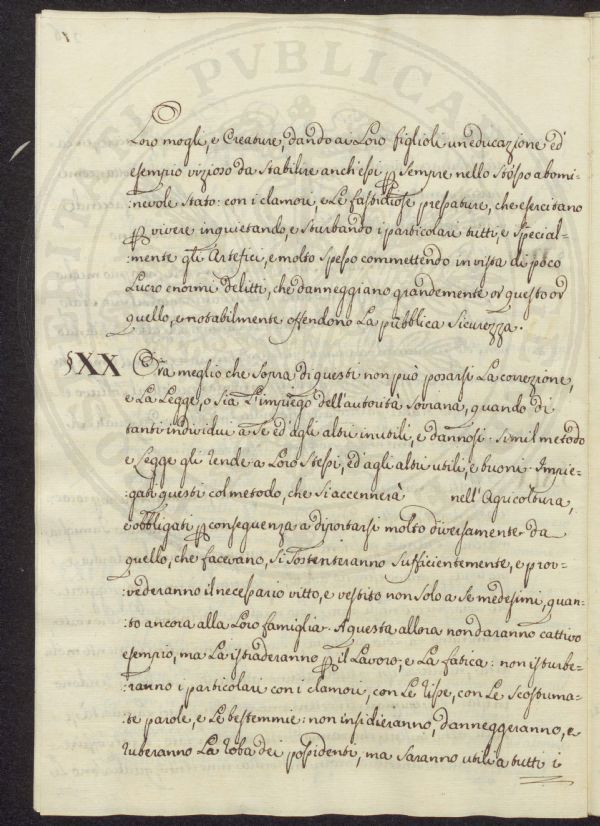 Loro mogli, e Creature, dando ai Loro figlioli un educazione ed
esempio vizioso da stabilire anch'essi ꝑ sempre nello stesso abomi:
:nevole stato: con i clamori, e Le fastidiose pressature, che esercitano
ꝑ vivere inquietando, e sturbando i particolari tutti, e special=
:mente gli Artefici, e molto spesso commettendo in vista di poco
Lucro enormi delitti, che danneggiano grandemente or questo or
quello, e notabilmente offendono La pubblica Sicurezza.
§XX Ora meglio che sopra di questi non può posarsi La correzione,
e La Legge, o sia L'impiego dell'autorità sovrana, quando di
tanti individui a se ed agli altri inutili, e dannosi. Simil metodo
e Legge gli rende a Loro stessi, ed agli altri utili, e buoni. Impie=
:gati questi col metodo, che si accennerà nell'Agricoltura,
e obbligati ꝑ conseguenza a diportarsi molto diversamente da
quello, che facevano, si sostenteranno sufficientemente, e prov=
:vederanno il necessario vitto, e vestito non solo a se medesimi, quan=
:to ancora alla Loro famiglia. A questa allora non daranno cattivo
esempio, ma La istraderanno ꝑ il Lavoro, e La fatica: non isturbe=
:ranno i particolari con i clamori, con Le risse, con Le scostuma=
:te parole, e Le bestemmie: non insidieranno, danneggeranno, e
ruberanno La roba dei possidenti, ma saranno utili a tutti i